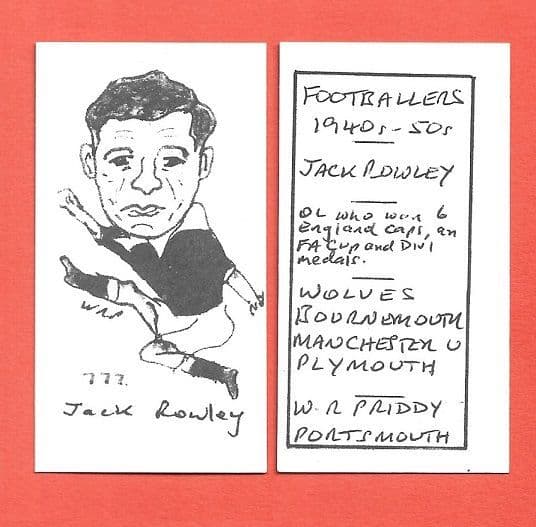 WRP
777.
Jack Rowley
FOOTBALLERS
1940s-50s
JACK ROWLEY
OL who won 6
England caps, an
FA Cup and Div 1
medals.
WOLVES
BOURNEMOUTH
MANCHESTER U
PLYMOUTH
W.R PRIDDY
PORTSMOUTH